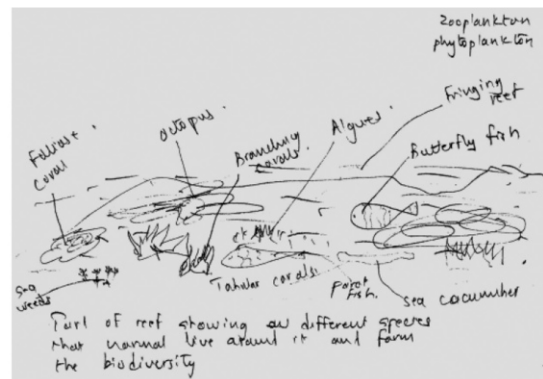 zooplankton
phytoplankton
Fringing
reef
octopus.
Algues.
Foliose
coral
Branching
corals.
Butterfly fish
Sea
weeds
Tabular corals.
Parot
fish.
sea cucumber
Part of reef showing different species
that normal live around it and form
the biodiversity